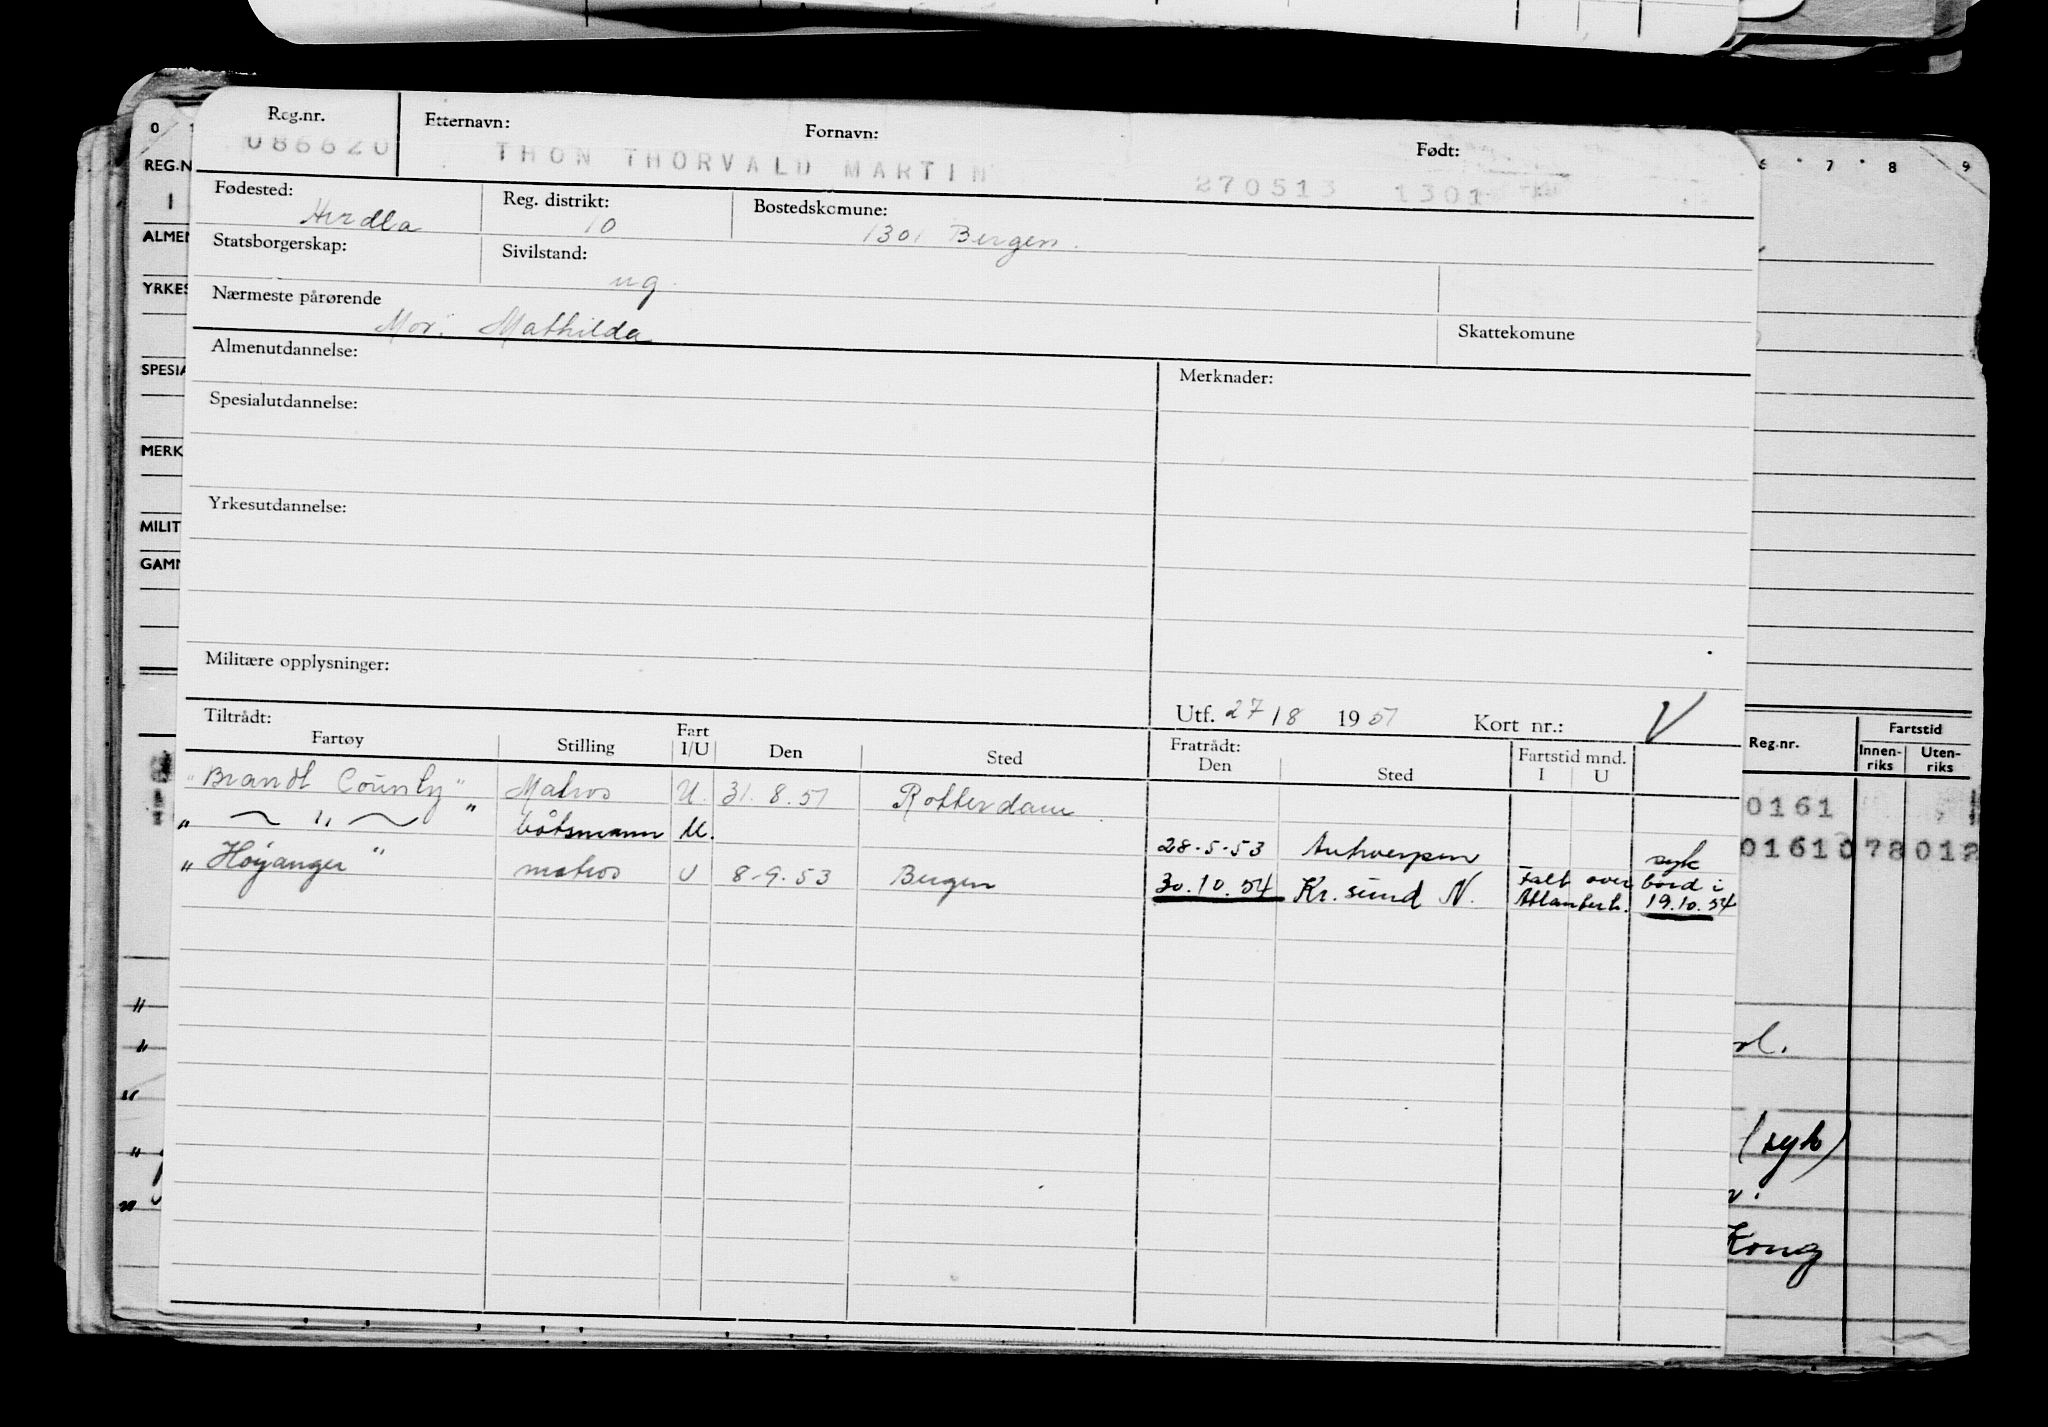 Reg.nr. Etternavn: Fornavn: Født:
086620 THON THORVALD MARTIN 270513 1301
Fødested: Reg. distrikt: Bostedskomune:
Herdla 10 1301 Bergen.
Statsborgerskap: Sivilstand:
ug.
Nærmeste pårørende
Mor: Mathilda Skattekomune
Almenutdannelse: Merknader:
Spesialutdannelse:
Yrkesutdannelse:
Militære opplysninger:
Utf. 27/8 1951 Kort nr.: V
Tiltrådt: Fratrådt:
Fartøy Stilling Fart I/U Den Sted Den Sted Fartstid mnd. I U
"Brandt County" Matros U. 31.8.51 Rotterdam
" — " — " båtsmann U. 28-5-53 Antwerpen syk
"Høyanger" matros U 8-9.53 Bergen 30.10.54 Kr.sund N. Falt over bord i
Atlanterh. 19.10.54
0 6 7 8 9
REG.N
ALMEN
YRKES
SPESIA
MERK
MILIT
GAMM
Reg.nr. Fartstid
Innen-riks Uten-riks
0161
01610 78 012
(syk)
Kong